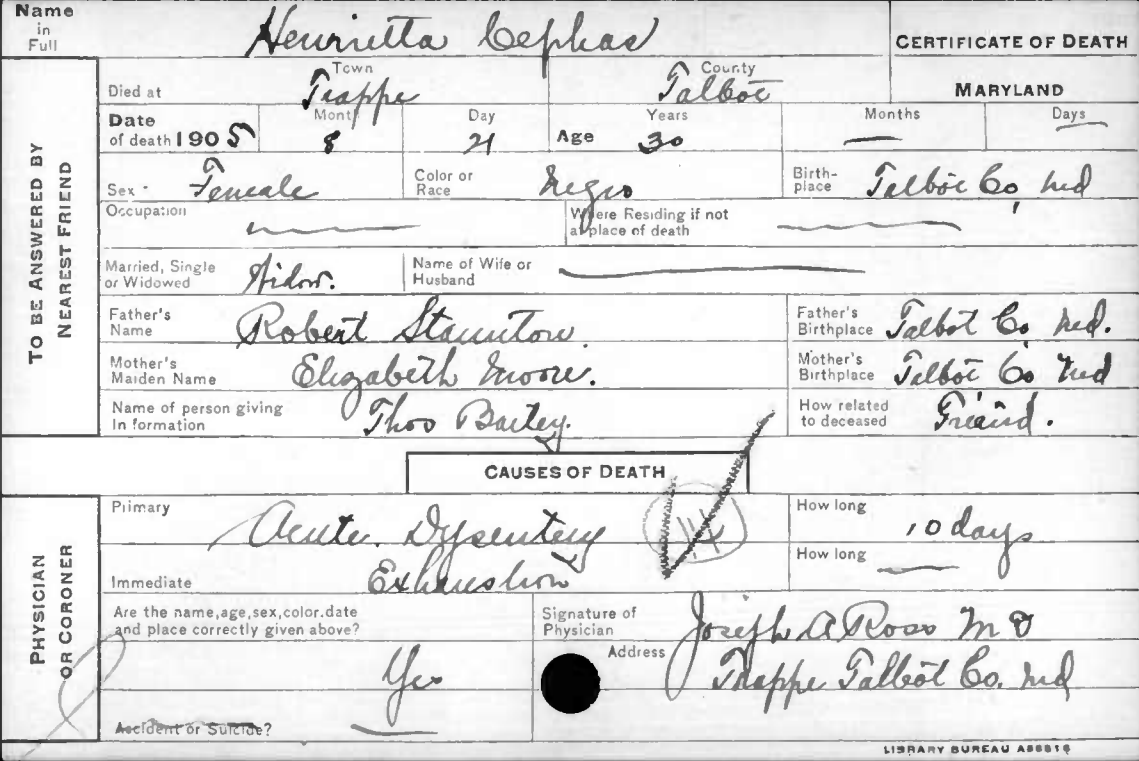 Name in Full Henrietta Cephas
CERTIFICATE OF DEATH
TO BE ANSWERED BY NEAREST FRIEND
Died at Town Trappe County Talbot MARYLAND
Date of death 1905 Month 8 Day 21 Age Years 30 Months — Days —
Sex Female Color or Race Negro Birth-place Talbot Co, Md
Occupation — Where Residing if not at place of death —
Married, Single or Widowed Widow. Name of Wife or Husband —
Father's Name Robert Staunton. Father's Birthplace Talbot Co Md.
Mother's Maiden Name Elizabeth Moore. Mother's Birthplace Talbot Co Md
Name of person giving In formation Thos Bailey. How related to deceased Freind.
CAUSES OF DEATH
PHYSICIAN OR CORONER
Primary Acute. Dysentery 14 How long 10 days
Immediate Exhaustion How long —
Are the name, age, sex, color. date and place correctly given above? Yes
Signature of Physician Joseph A Ross M D
Address Trappe Talbot Co. Md
Accident or Suicide? —
LIBRARY BUREAU A88816